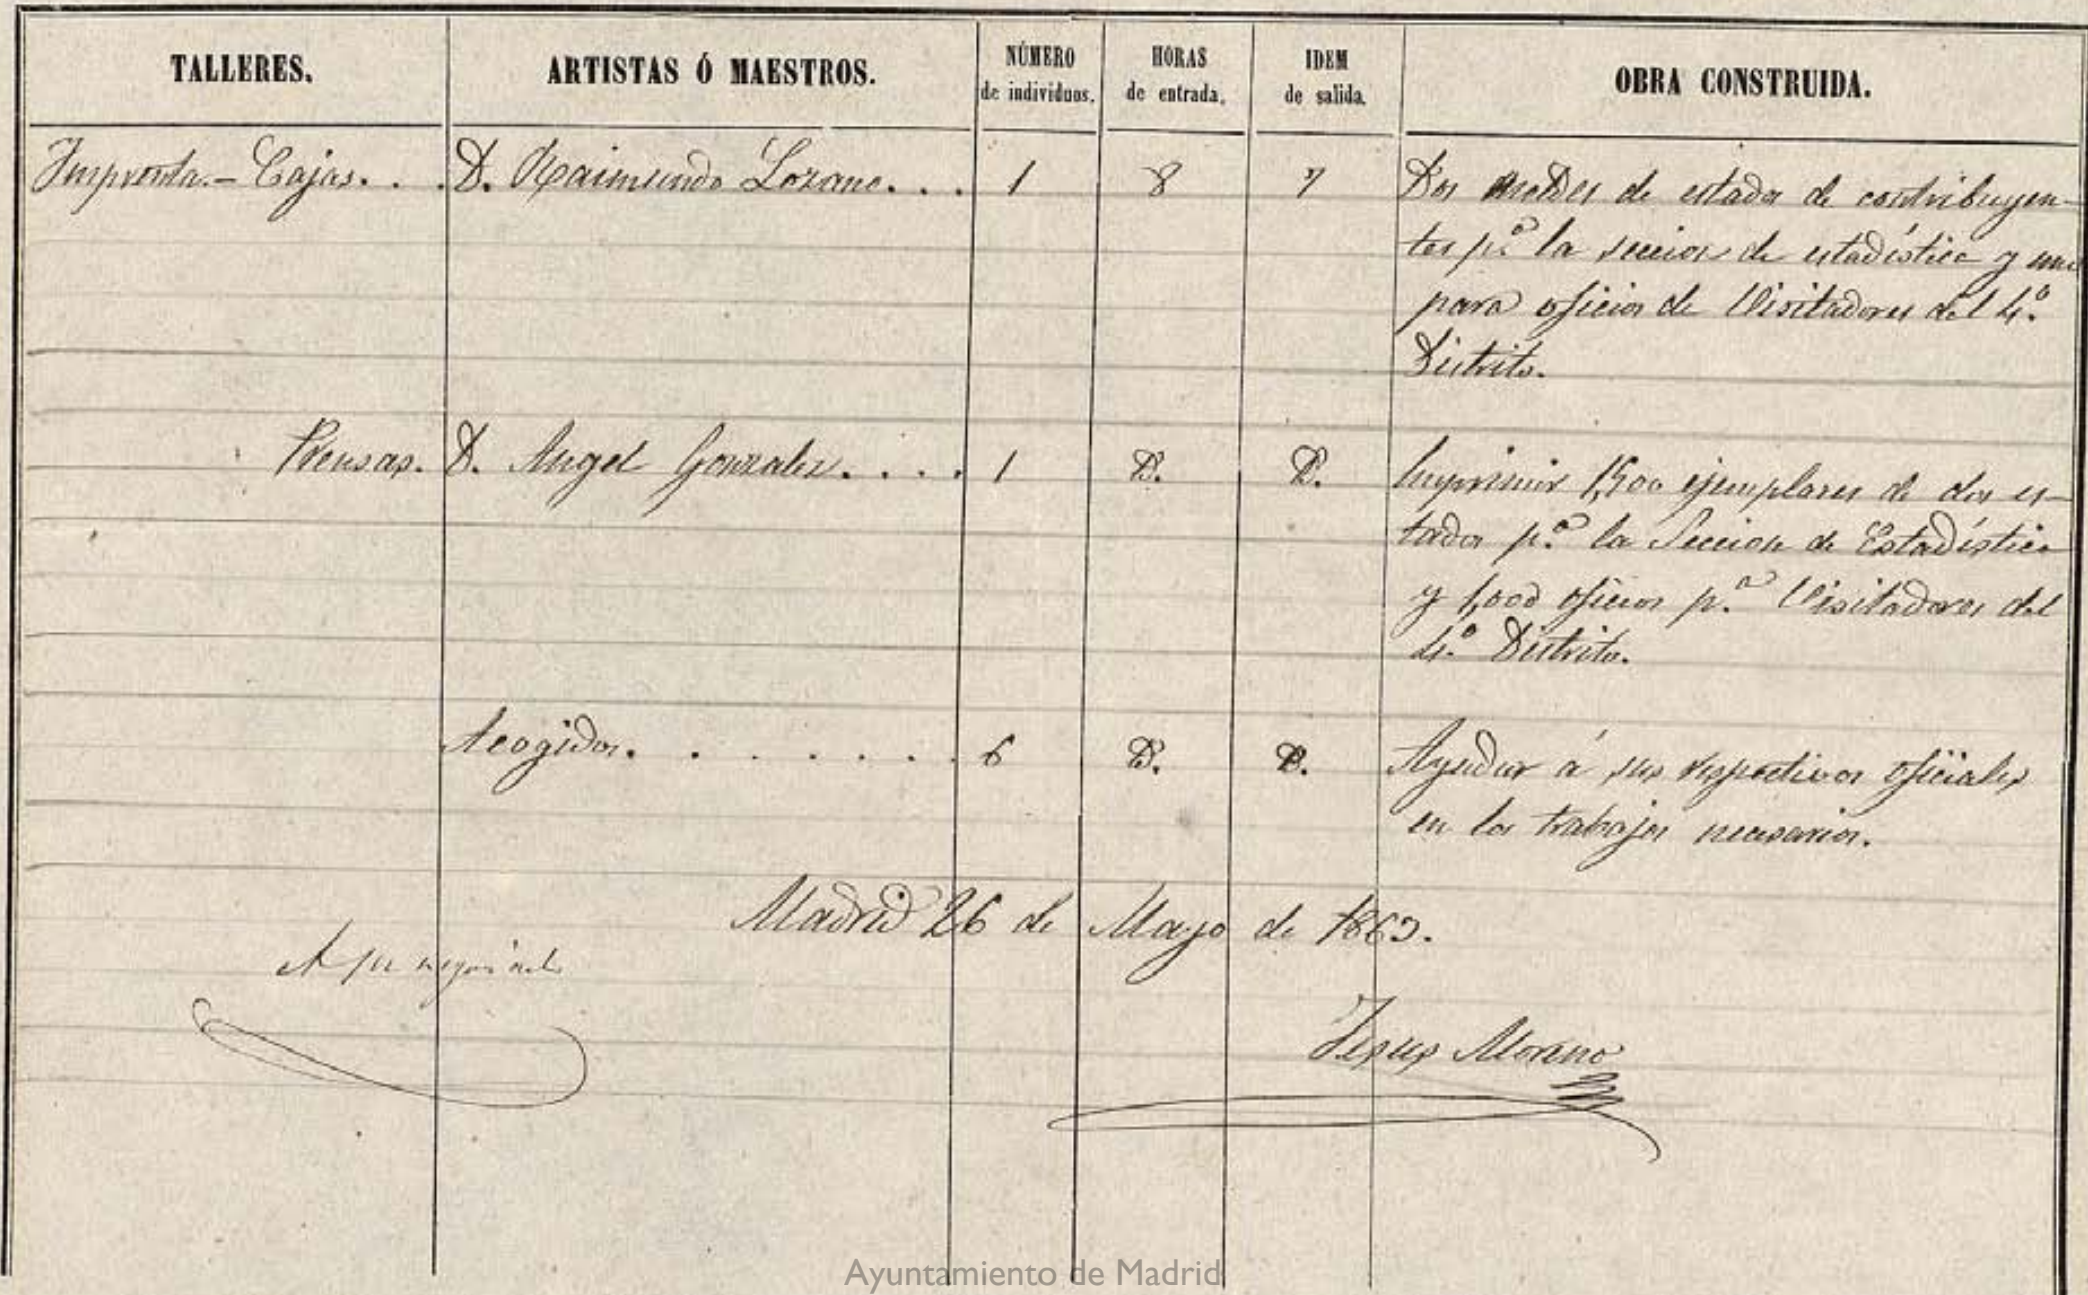 TALLERES. ARTISTAS Ó MAESTROS. NÚMERO de individuos. HORAS de entrada. IDEM de salida. OBRA CONSTRUIDA.
Imprenta.- Cajas. . . D. Raimundo Lozano. . . 1 8 7 Dos moldes de estados de contribuyen-
tes p.ª la seccion de estadística y uno
para oficios de Visitadores del 4.º
Distrito.
Prensas. D. Angel Gonzalez. . . . 1 D. D. Imprimir 1,500 ejemplares de dos es-
tados p.ª la Seccion de Estadística
y 1,000 oficios p.ª Visitadores del
4.º Distrito.
Acogidos. . . . . . . 6 D. D. Ayudar á sus respectivos oficiales
en los trabajos necesarios.
Madrid 26 de Mayo de 1863.
Jesus Moreno
Ayuntamiento de Madrid